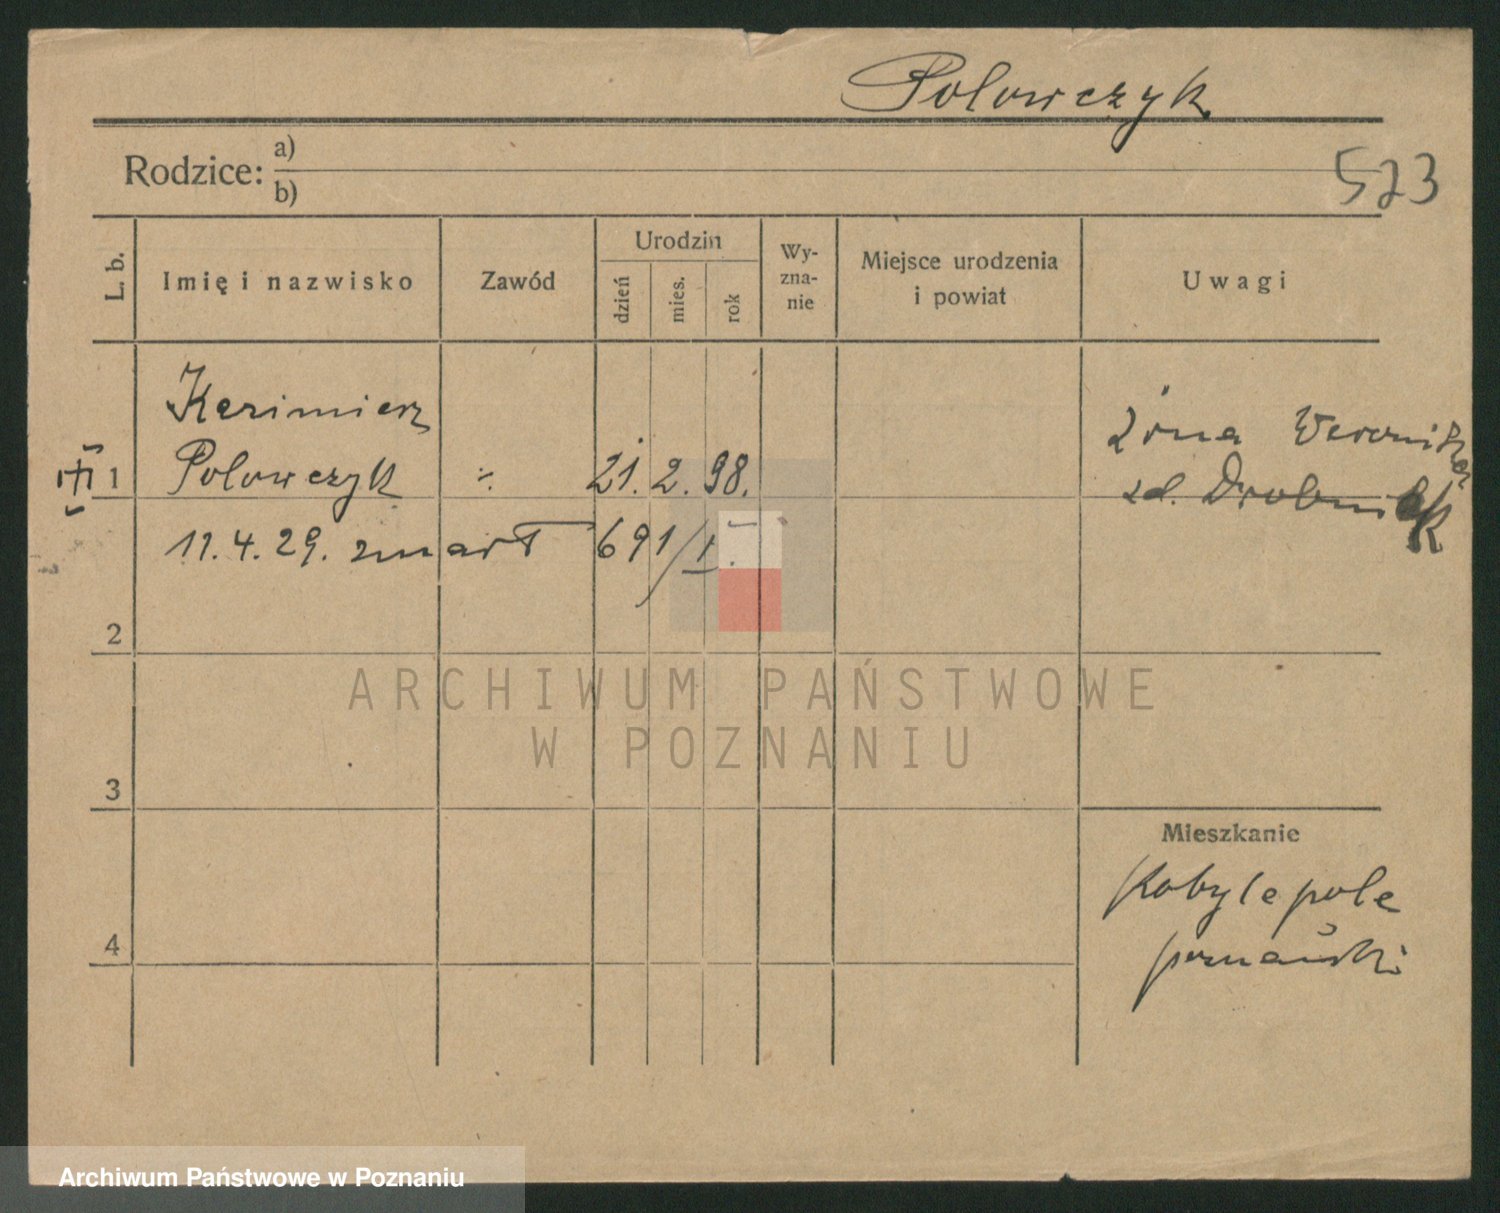 Polowczyk
Rodzice: a)
b)
523
L. b.
Imię i nazwisko
Zawód
Urodzin
dzień
mies.
rok
Wy-
zna-
nie
Miejsce urodzenia
i powiat
Uwagi
Kazimierz
1 Polowczyk 21. 2. 98.
11.4.29. zmarł 691/I.
żona Weronika
zd. Drobnik
2
3
4
Mieszkanie
Kobylepole
poznański
ARCHIWUM PAŃSTWOWE
W POZNANIU
Archiwum Państwowe w Poznaniu